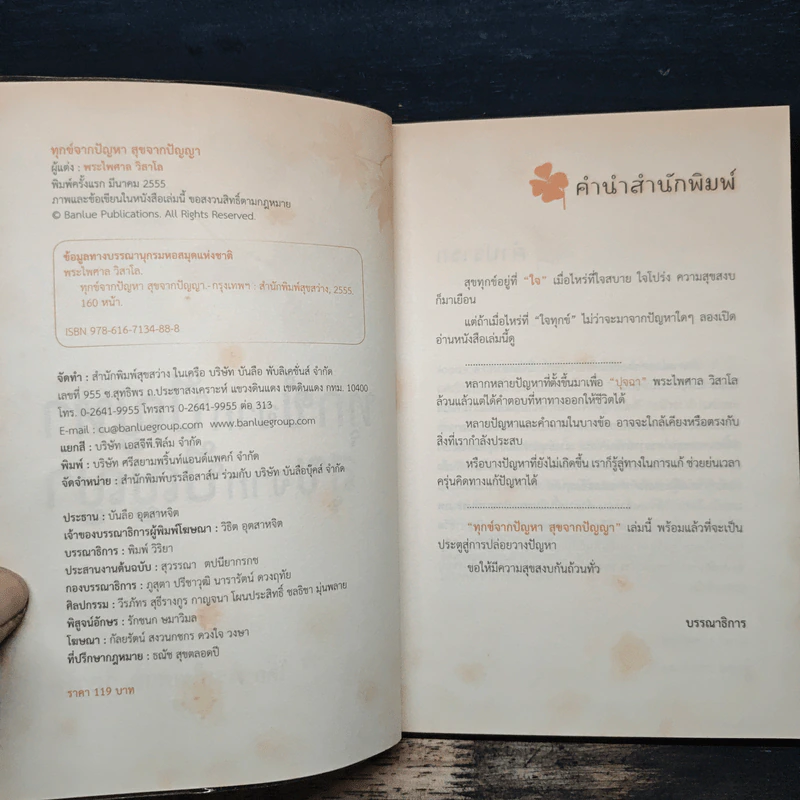 ทุกข์จากปัญหา สุขจากปัญญา
ผู้แต่ง : พระไพศาล วิสาโล
พิมพ์ครั้งแรก มีนาคม 2555
ภาพและข้อเขียนในหนังสือเล่มนี้ ขอสงวนสิทธิ์ตามกฎหมาย
© Banlue Publications. All Rights Reserved.
ข้อมูลทางบรรณานุกรมหอสมุดแห่งชาติ
พระไพศาล วิสาโล.
ทุกข์จากปัญหา สุขจากปัญญา.-กรุงเทพฯ : สำนักพิมพ์สุขสว่าง, 2555.
160 หน้า.
ISBN 978-616-7134-88-8
จัดทำ : สำนักพิมพ์สุขสว่าง ในเครือ บริษัท บันลือ พับลิเคชั่นส์ จำกัด
เลขที่ 955 ซ.สุทธิพร ถ.ประชาสงเคราะห์ แขวงดินแดง เขตดินแดง กทม. 10400
โทร. 0-2641-9955 โทรสาร 0-2641-9955 ต่อ 313
E-mail : cu@banluegroup.com www.banluegroup.com
แยกสี : บริษัท เอสจีพี.ฟิล์ม จำกัด
พิมพ์ : บริษัท ศรีสยามพริ้นท์แอนด์แพคก์ จำกัด
จัดจำหน่าย : สำนักพิมพ์บรรลือสาส์น ร่วมกับ บริษัท บันลือบุ๊คส์ จำกัด
ประธาน : บันลือ อุตสาหจิต
เจ้าของบรรณาธิการผู้พิมพ์โฆษณา : วิธิต อุตสาหจิต
บรรณาธิการ : พิมพ์ วิริยา
ประสานงานต้นฉบับ : สุวรรณา ตปนียากรกช
กองบรรณาธิการ : ภูสุตา ปรีชาวุฒิ นารารัตน์ ดวงฤทัย
ศิลปกรรม : วีรภัทร สุธีรางกูร กาญจนา โผนประสิทธิ์ ชลธิชา มุ่นพลาย
พิสูจน์อักษร : รักชนก ษมาวิมล
โฆษณา : กัลยรัตน์ สงวนกชกร ดวงใจ วงษา
ที่ปรึกษากฎหมาย : ธณัช สุขตลอดปี
ราคา 119 บาท
คำนำสำนักพิมพ์
สุขทุกข์อยู่ที่ “ใจ” เมื่อไหร่ที่ใจสบาย ใจโปร่ง ความสุขสงบ
ก็มาเยือน
แต่ถ้าเมื่อไหร่ที่ “ใจทุกข์” ไม่ว่าจะมาจากปัญหาใดๆ ลองเปิด
อ่านหนังสือเล่มนี้ดู
................................................
หลากหลายปัญหาที่ตั้งขึ้นมาเพื่อ “ปุจฉา” พระไพศาล วิสาโล
ล้วนแล้วแต่ได้คำตอบที่หาทางออกให้ชีวิตได้
หลายปัญหาและคำถามในบางข้อ อาจจะใกล้เคียงหรือตรงกับ
สิ่งที่เรากำลังประสบ
หรือบางปัญหาที่ยังไม่เกิดขึ้น เราก็รู้สู่ทางในการแก้ ช่วยย่นเวลา
ครุ่นคิดทางแก้ปัญหาได้
................................................
“ทุกข์จากปัญหา สุขจากปัญญา” เล่มนี้ พร้อมแล้วที่จะเป็น
ประตูสู่การปล่อยวางปัญหา
ขอให้มีความสุขสงบกันถ้วนทั่ว
บรรณาธิการ